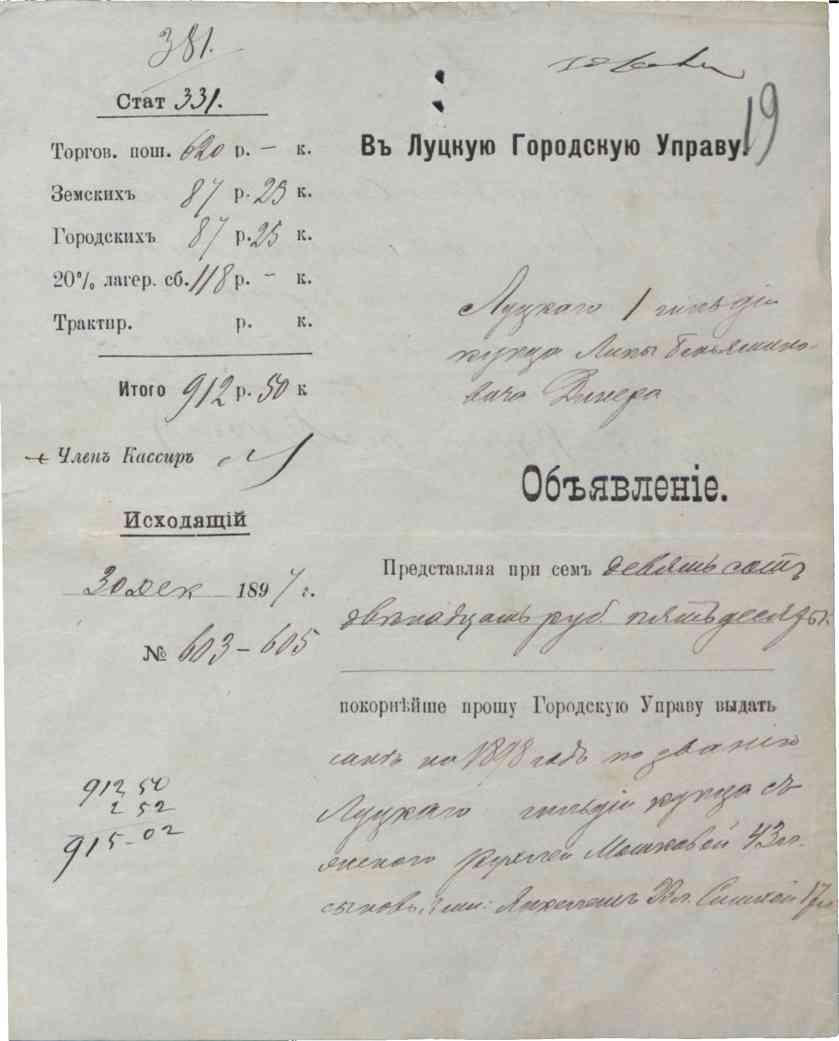 381.
Стат 331.
Торгов. пош. 620 р. – к.
Земскихъ 87 р. 25 к.
Городскихъ 87 р. 25 к.
20% лагер. сб. 118 р. – к.
Трактир. р. к.
Итого 912 р. 50 к
Членъ Кассиръ
Исходящій
30 дек 1897 г.
№ 603–605
912 50
2 52
915-02
19
Въ Луцкую Городскую Управу.
Луцкаго 1 гильдіи
купца Липы Беньямино-
вича Динера
Объявленіе.
Представляя при семъ девятьсотъ
двѣнадцать руб. пятьдесятъ к.
покорнѣйше прошу Городскую Управу выдать
на 1898 годъ по званію
Луцкаго гильдіи купца съ
женою Мошковой 43 л.
сыновь.